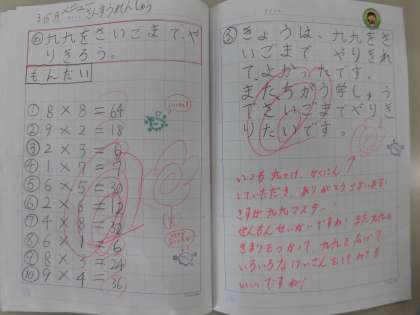 3/6月 メニュー
さんすうれんしゅう
め 九九をさいごまで、や
りきろう。
もんだい
① 8 × 8 = 64
② 9 × 2 = 18
③ 2 × 3 = 6
④ 1 × 7 = 7
⑤ 6 × 5 = 30
⑥ 2 × 6 = 12
⑦ 4 × 8 = 32
⑧ 6 × 1 = 6
⑨ 8 × 3 = 24
⑩ 9 × 4 = 36
きょうは、九九をさ
いごまで やりきれ
て、よかったです。
またちがう学しゅう
でさいごまでやりき
りたいです。
いつも九九を、かくにん
していただき、ありがとうございます!
さすが九九マスター!
ぜんもんせいかいですね! また九九の
きまりをつかって、九九を広げて
いろいろなけいさんを
いいですね!